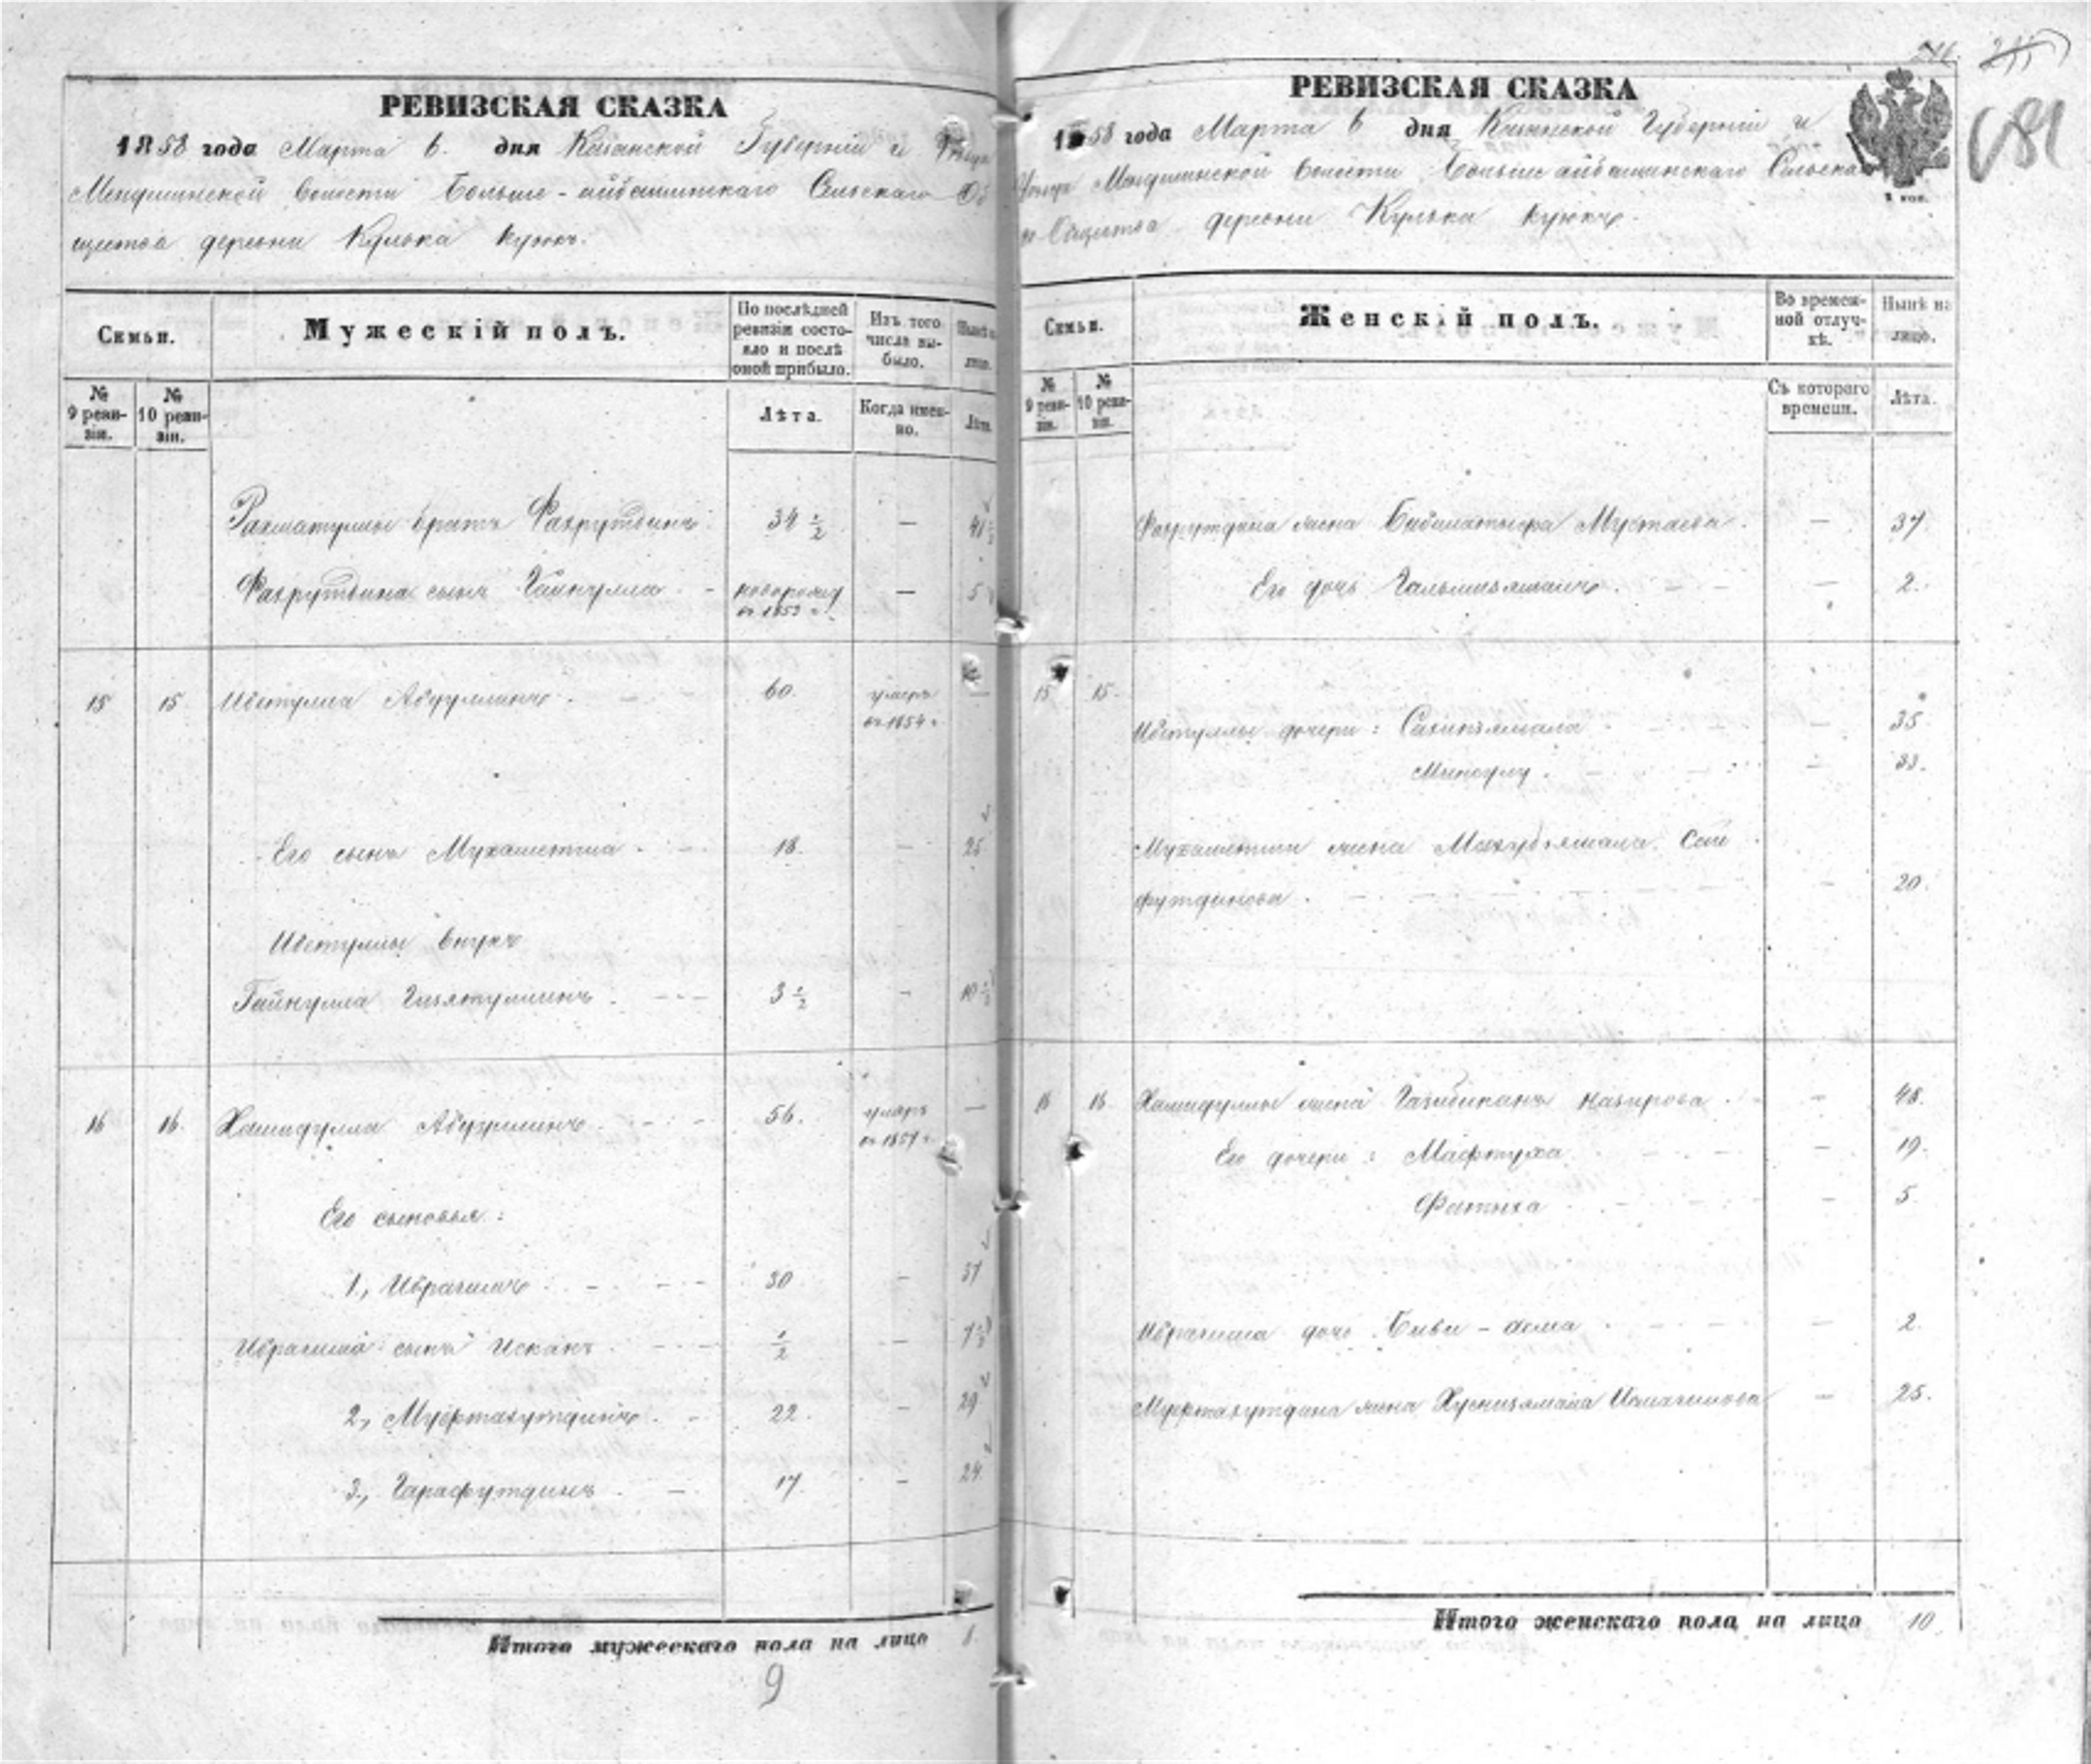 РЕВИЗСКАЯ СКАЗКА
1858 года Марта 6. дня Казанской Губерніи и
Мендюшской волости Больше-айбашинскаго Сельскаго Об
щества деревни Кулька куюкъ.
Семьи.
Мужескій полъ.
По послѣдней ревизіи состояло и послѣ оной прибыло.
Изъ того числа выбыло.
Нынѣ на лицо.
№ 9 ревизіи.
№ 10 ревизіи.
Лѣта.
Когда именно.
Лѣта.
Рахматуллы братъ Фахрутдинъ 34 1/2 — 41 1/2
Фахрутдина сынъ Гайнулла - новорожд — 5
въ 1853 г.
15 15 Ибетулла Абдуллинъ. 60. умеръ —
въ 1854 г.
Его сынъ Мухаметша 18. — 25
Ибетуллы внукъ
Гайнулла Гизятуллинъ 3 1/2 - 10 1/2
16 16. Хамидулла Абдуллинъ 56. умеръ —
Его сыновья:
1, Ибрагимъ 30 - 37
Ибрагима сынъ Исканъ 1/2 — 7 1/2
2, Муфтахутдинъ 22. - 29
3, Гарафутдинъ 17 - 24.
Итого мужескаго пола на лицо
9
РЕВИЗСКАЯ СКАЗКА
1858 года Марта 6 дня Казанской Губерніи и
волости Больше айбашинскаго Сельска
го Общества деревни Кулька куюкъ.
681
Семьи.
Женскій полъ.
Во временной отлучкѣ.
Нынѣ на лицо.
№ 9 ревизіи.
№ 10 ревизіи.
Съ котораго времени.
Лѣта.
Фахрутдина жена Мустаева. — 37
Его дочь — 2.
15 15. Ибетуллы дочери: — 35
— 33.
Мухаметши жена Сай
футдинова. - 20.
16 16. Хамидуллы жена Назирова - 48.
Его дочери: Мафтуха — 19.
Фатыха — 5.
Ибрагима дочь Биби - - 2.
Муфтахутдина жена Хуснизямала Исмагилова — 25.
Итого женскаго пола на лицо 10.